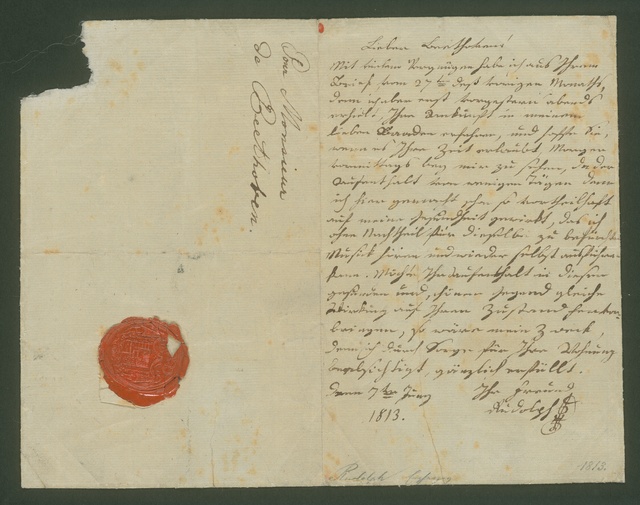 Pour Monsieur
de Beethoven.
Lieber Beethoven!
Mit vielem Vergnügen habe ich aus Ihrem
Brief vom 27ten des vorigen Monaths,
den ich aber erst vorgestern abends
erhielt, Ihre Ankunft in meinem
lieben Baaden erfahren, und hoffe Sie,
wenn es Ihre Zeit erlaubt, Morgen
vormittags bey mir zu sehen, da der
Aufenthalt von wenigen Tägen den
ich hier gemacht, schon so vortheilhaft
auf meine Gesundheit gewirkt, das ich
ohne Nachtheil für dieselbe zu befürchten
Musik hören und wieder selbst ausführen
kann. Möchte Ihr Aufenthalt in dieser
gesunden und schönen Gegend gleiche
Wirkung auf Ihren Zustand hervor-
bringen, so wäre mein Zweck,
den ich durch Sorge für Ihre Wohnung
beabsichtigt, gänzlich erfüllt.
den 7ten Juny Ihr Freund
1813. Rudolph
Rudolph
1813.